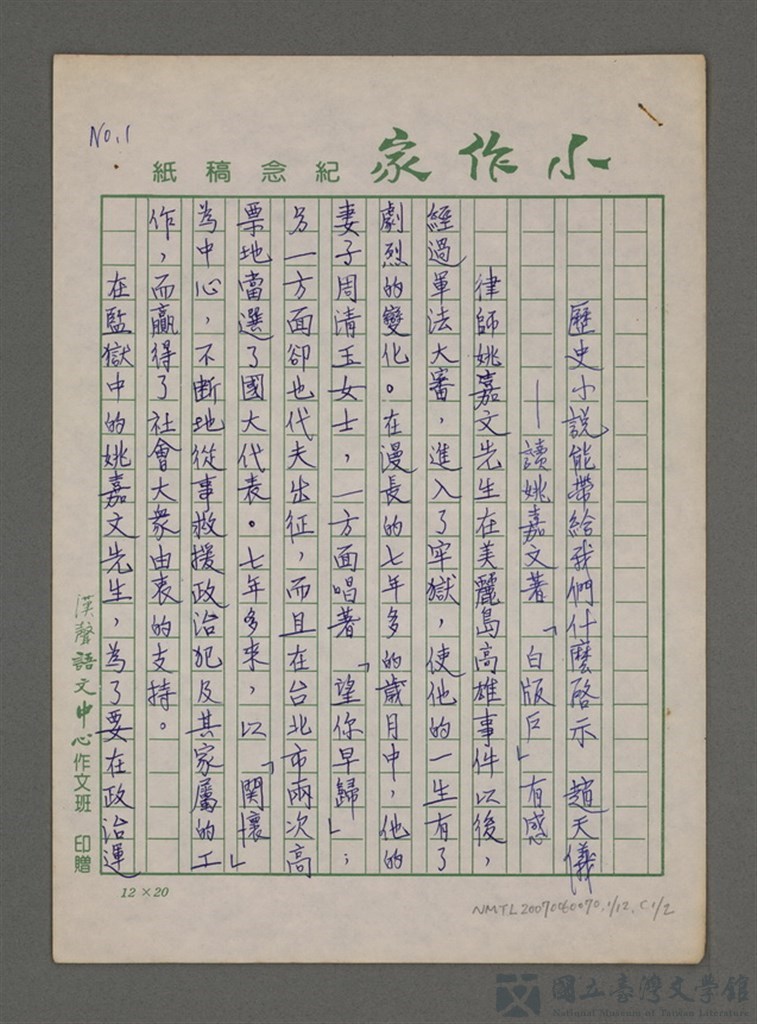 No.1
小作家 紀念稿紙
歷史小說能帶給我們什麼啓示 趙天儀
—讀姚嘉文著「白版戶」有感
律師姚嘉文先生在美麗島高雄事件以後，
經過軍法大審，進入了牢獄，使他的一生有了
劇烈的變化。在漫長的七年多的歲月中，他的
妻子周清玉女士，一方面唱著「望你早歸」；
另一方面卻也代夫出征，而且在台北市兩次高
票地當選了國大代表。七年多來，以「関懷」
為中心，不斷地從事救援政治犯及其家屬的工
作，而贏得了社會大衆由衷的支持。
在監獄中的姚嘉文先生，為了要在政治運
漢聲語文中心作文班 印贈
12×20
NMTL20070060070,1/12,C1/2
國立臺灣文學館
National Museum of Taiwan Literature